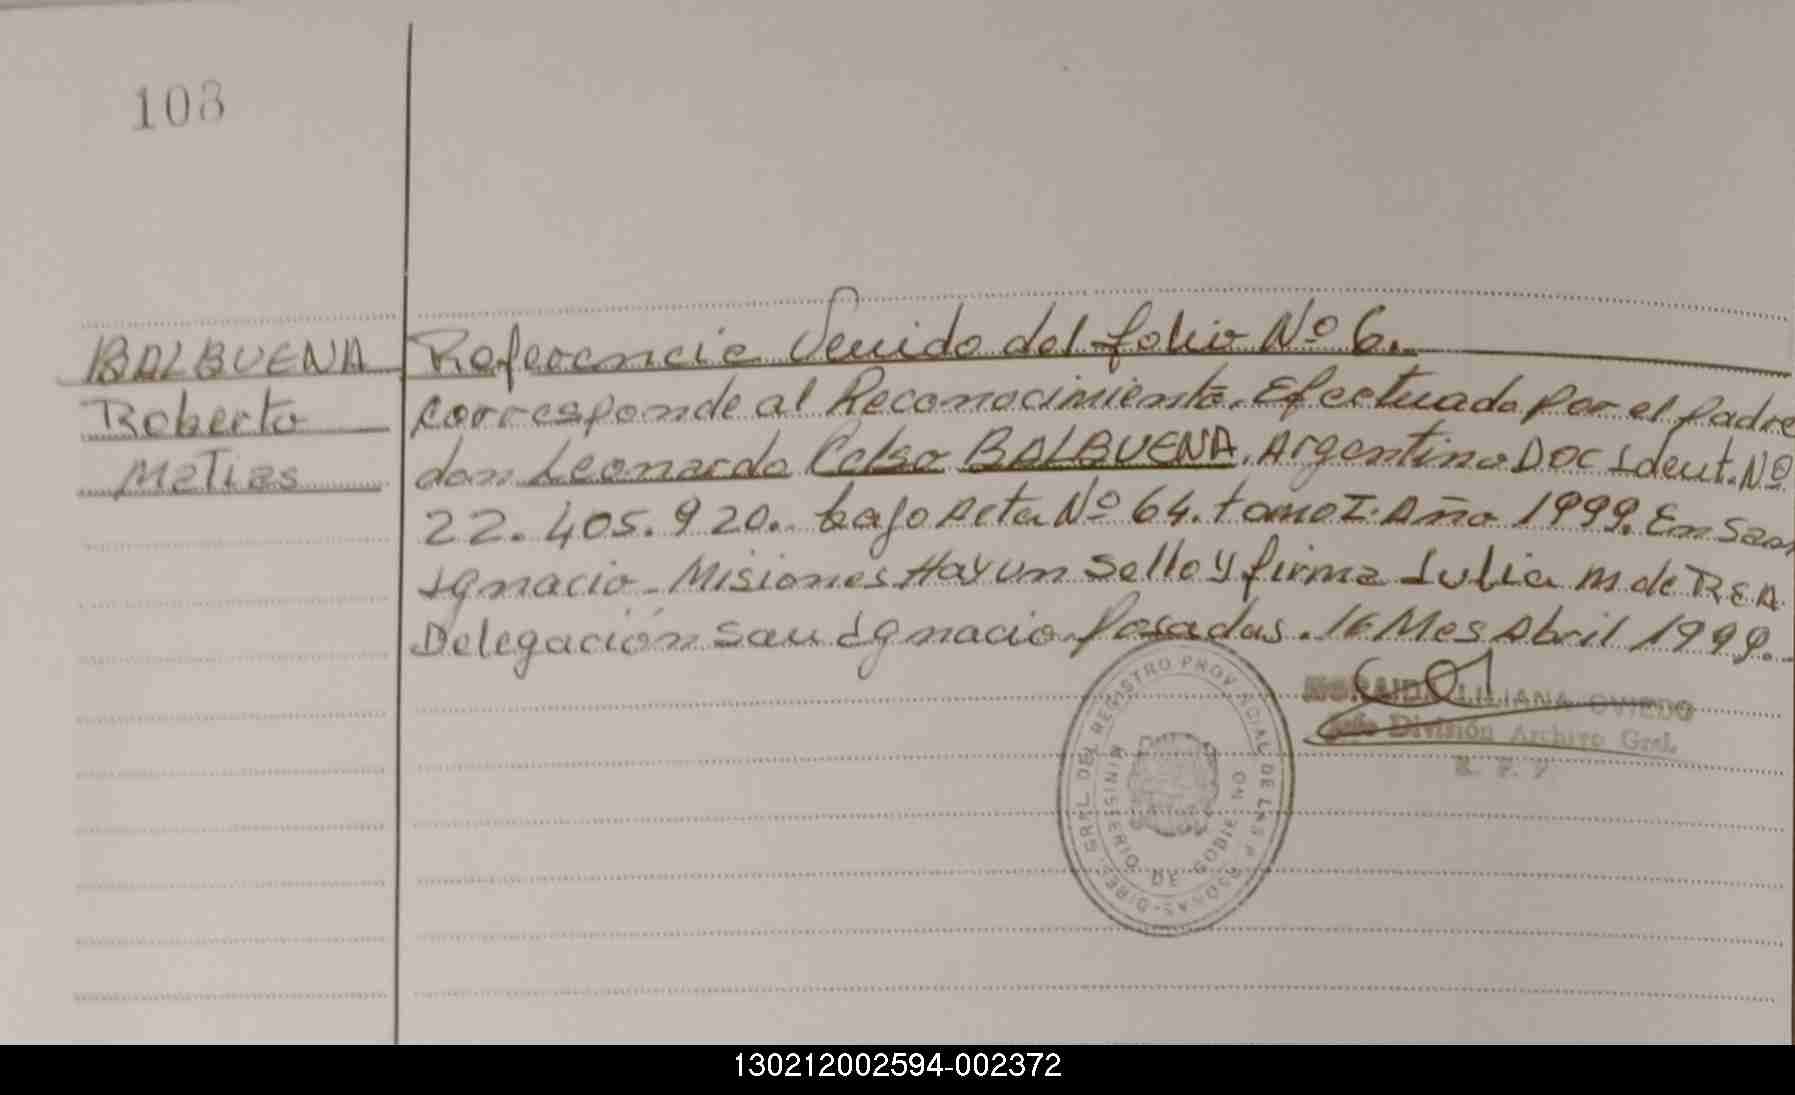 108
BALBUENA
Roberto
Matias
Referencia Venido del folio Nº 6.
corresponde al Reconocimiento. Efectuado por el padre
don Leonardo Celso BALBUENA. Argentino Doc Ident. Nº
22.405.920. bajo Acta Nº 64. tomo I. Año 1999. En San
Ignacio - Misiones Hay un Sello y firma Julia M de REA
Delegación San Ignacio. Posadas. 16 Mes Abril 1999.
LILIANA OVIEDO
Jefe División Archivo Gral.
DIREC. GRAL. DEL REGISTRO PROVINCIAL DE LAS PERSONAS
MINISTERIO DE GOBIERNO
130212002594-002372